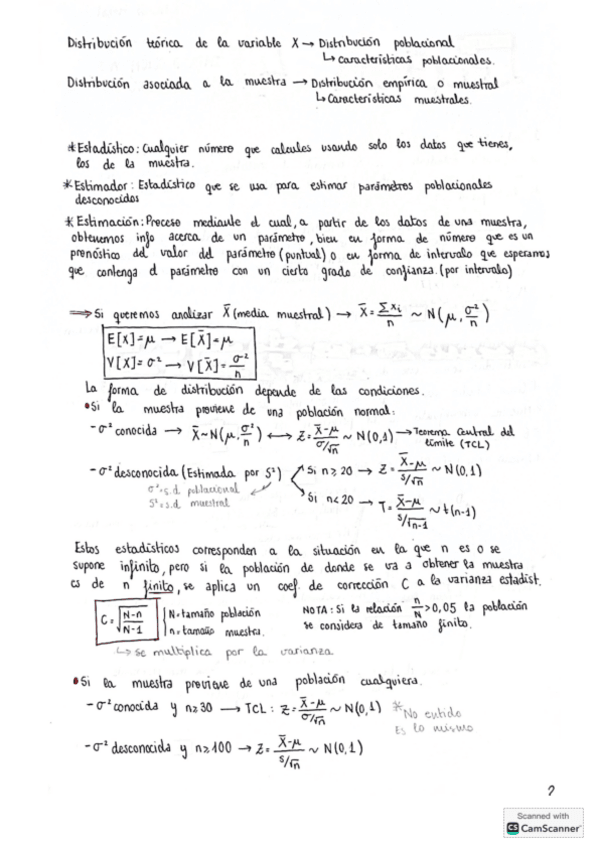 Distribución teórica de la variable X → Distribución poblacional
↳ características poblacionales.
Distribución asociada a la muestra → Distribución empírica o muestral
↳ Características muestrales.
* Estadístico: Cualquier número que calcules usando solo los datos que tienes,
los de la muestra.
* Estimador: Estadístico que se usa para estimar parámetros poblacionales
desconocidos
* Estimación: Proceso mediante el cual, a partir de los datos de una muestra,
obtenemos info acerca de un parámetro, bien en forma de número que es un
pronóstico del valor del parámetro (puntual) o en forma de intervalo que esperamos
que contenga el parámetro con un cierto grado de confianza. (por intervalo)
⇒ Si queremos analizar X̄ (media muestral) → X̄ = Σxi/n ~ N(μ, σ²/n)
E[X]=μ → E[X̄]=μ
V[X]=σ² → V[X̄]=σ²/n
La forma de distribución depende de las condiciones.
• Si la muestra proviene de una población normal:
- σ² conocida → X̄~N(μ, σ²/n) ↔ Z = X̄-μ / σ/√n ~ N(0,1) → Teorema Central del
Límite (TCL)
- σ² desconocida (Estimada por S²) Si n ≥ 20 → Z = X̄-μ / s/√n ~ N(0,1)
σ² = s.d poblacional
S² = s.d muestral
Si n < 20 → T = X̄-μ / s/√n-1 ~ t(n-1)
Estos estadísticos corresponden a la situación en la que n es o se
supone infinito, pero si la población de donde se va a obtener la muestra
es de n finito, se aplica un coef. de corrección C a la varianza estadíst.
C = √(N-n / N-1) N = tamaño población
n = tamaño muestra.
NOTA: Si la relación n/N > 0,05 la población
se considera de tamaño finito.
↳ se multiplica por la varianza.
• Si la muestra proviene de una población cualquiera.
- σ² conocida y n≥30 → TCL: Z = X̄-μ / σ/√n ~ N(0,1) * No entido
Es lo mismo
- σ² desconocida y n≥100 → Z = X̄-μ / s/√n ~ N(0,1)
2
Scanned with
CS CamScanner